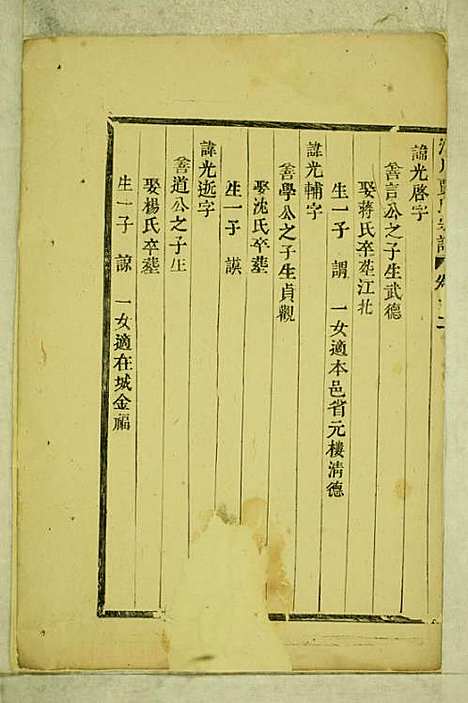 諱光啓字
善言公之子生武德
娶蔣氏卒塟江北
生一子 謂 一女適本邑省元樓清德
諱光輔字
善學公之子生貞觀
娶沈氏卒塟
生一子 謨
諱光逝字
善道公之子生
娶楊氏卒塟
生一子 諒 一女適在城金福